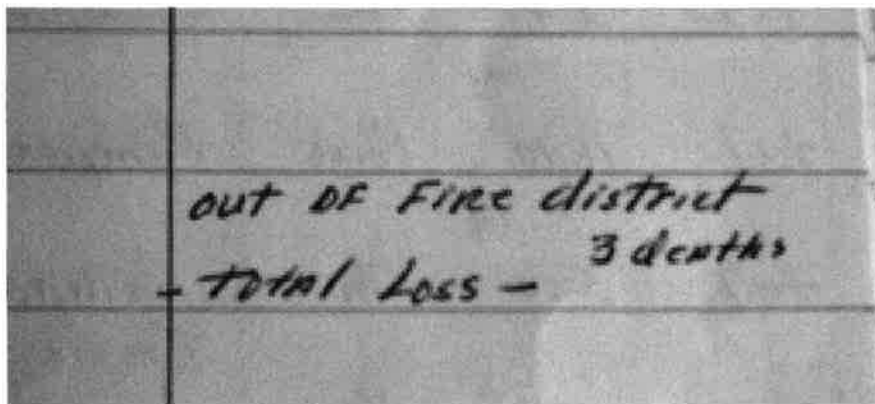 out OF Fire district
3 deaths
- total Loss -